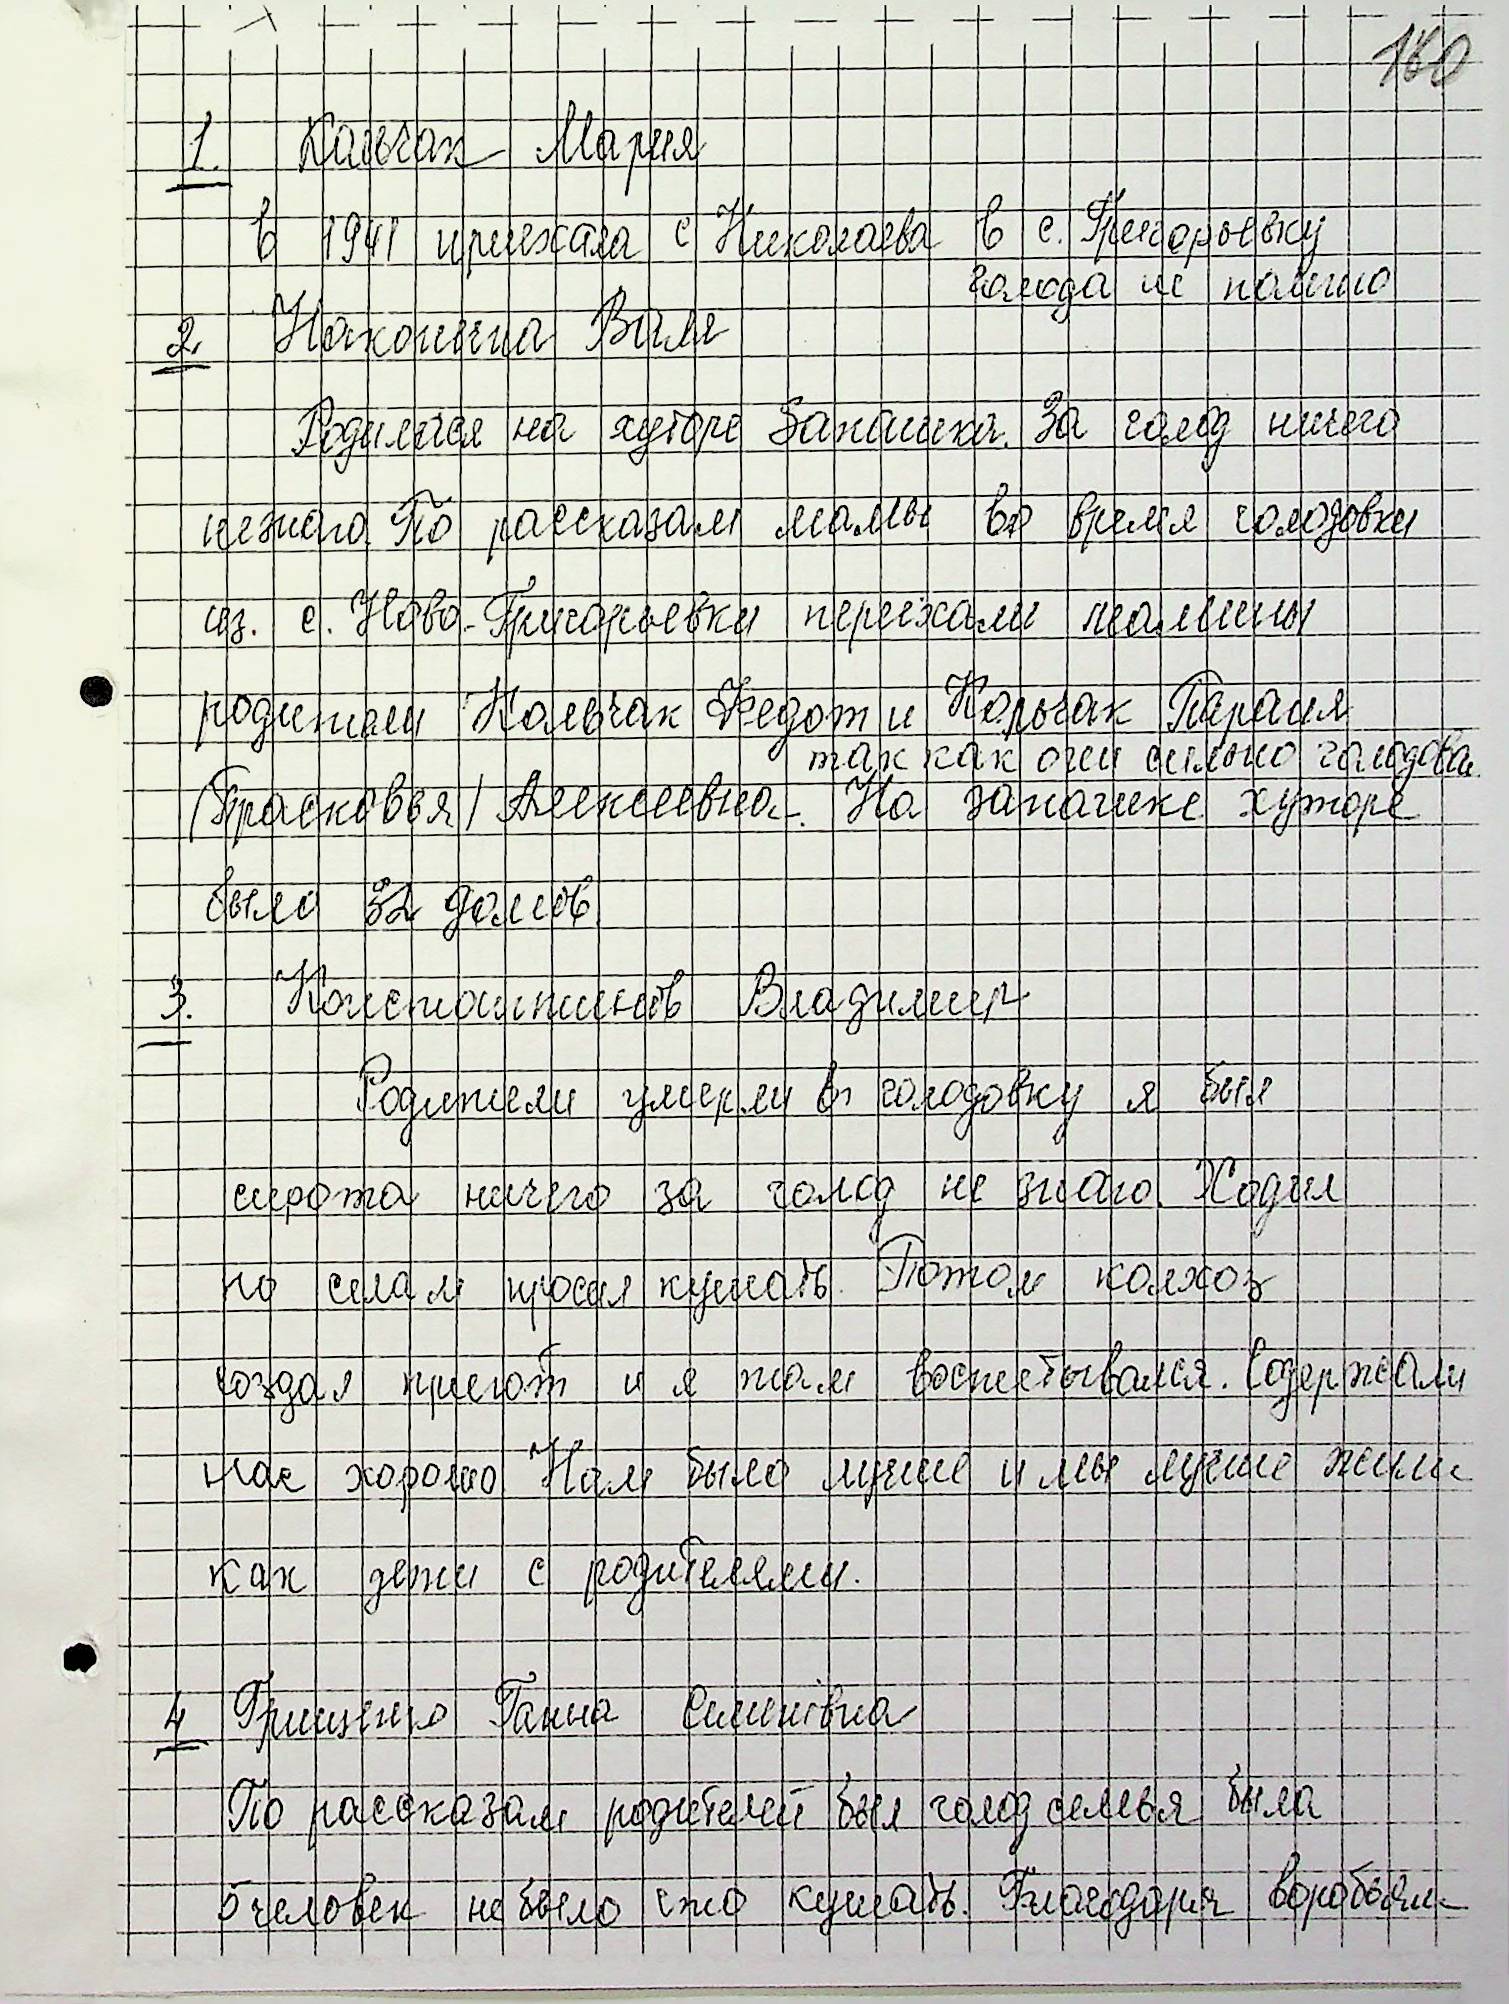 160
1. Кальчак Мария
в 1941 приехала с Николаева в с. Григорьевку
голода не помню
2. Наконечна Виля
Родилася на хуторе Запашка. За голод ничего
незнаю. По рассказам мамы во время голодовки
из. с. Ново-Григорьевки переехали мамины
родители Кальчак Федот и Кальчак Параня
так как они сильно голодовали.
(Прасковья) Алексеевна. На запашке хуторе
было 32 домов.
3. Константинов Владимир
Родители умерли в голодовку я был
сирота ничего за голод не знаю. Ходил
по селам просил кушать. Потом колхоз
создал приют и я там воспитывался. Содержали
нас хорошо. Нам было лучше и мы лучше жили
как дети с родителями.
4 Грищенко Ганна Семенівна
По рассказам родителей был голод семья была
5 человек не было что кушать. Благодаря воробьям